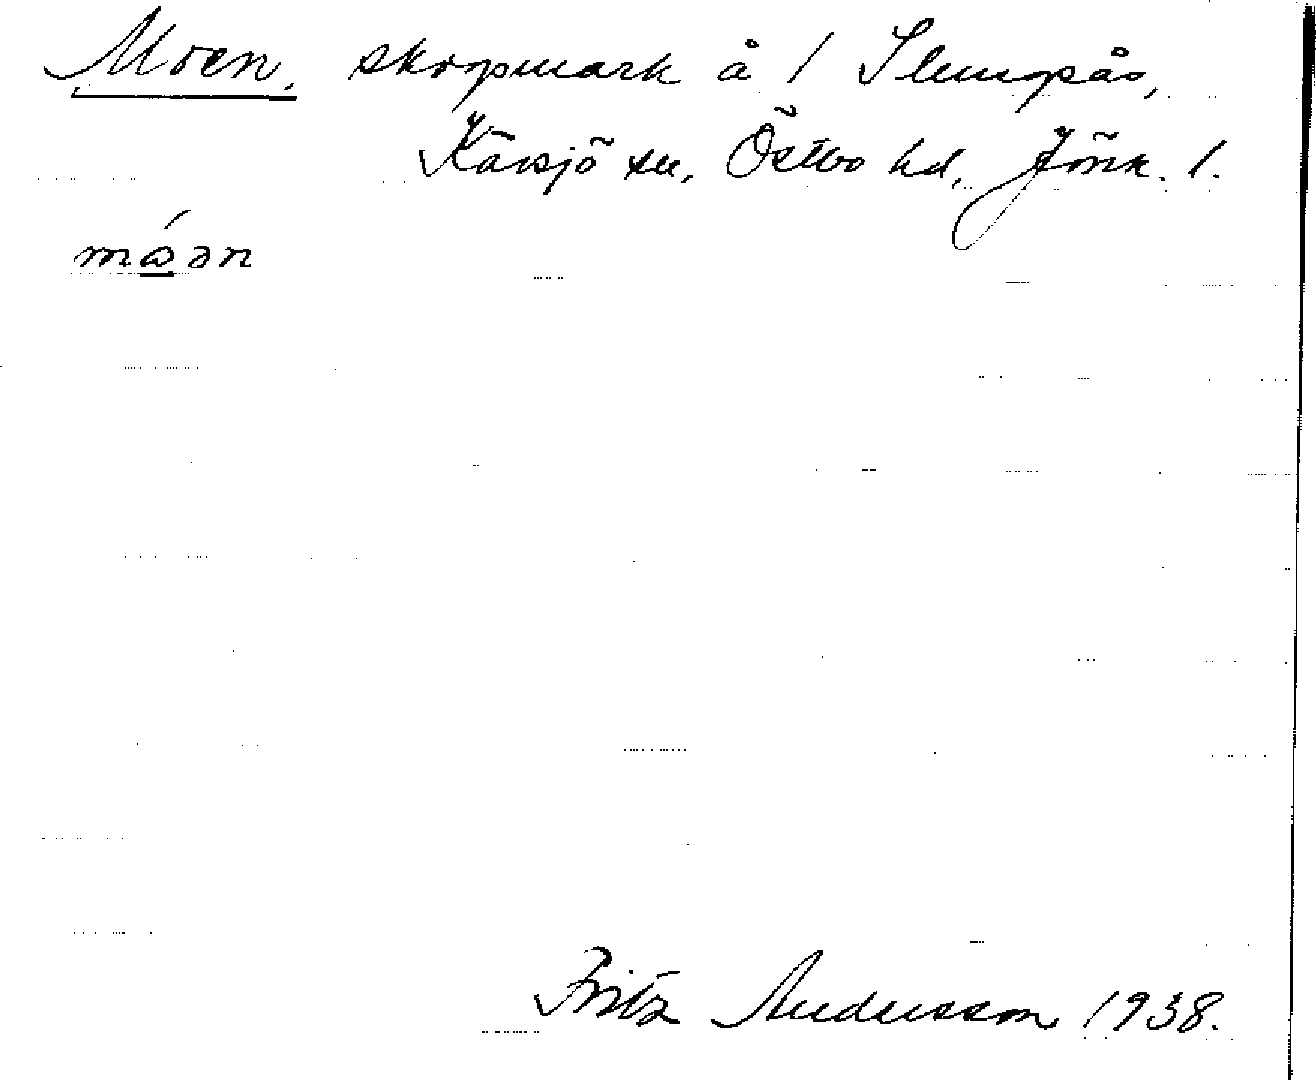 Moen, skogsmark å / Slungsås,
Kävsjö sn, Östbo hd, Jönk. l.
móən
Fritz Andersson 1938.